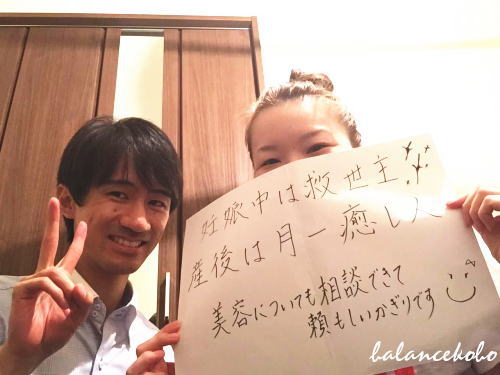 妊娠中は救世主
産後は月一癒し人
美容についても相談できて
頼もしいかぎりです
balancekobo